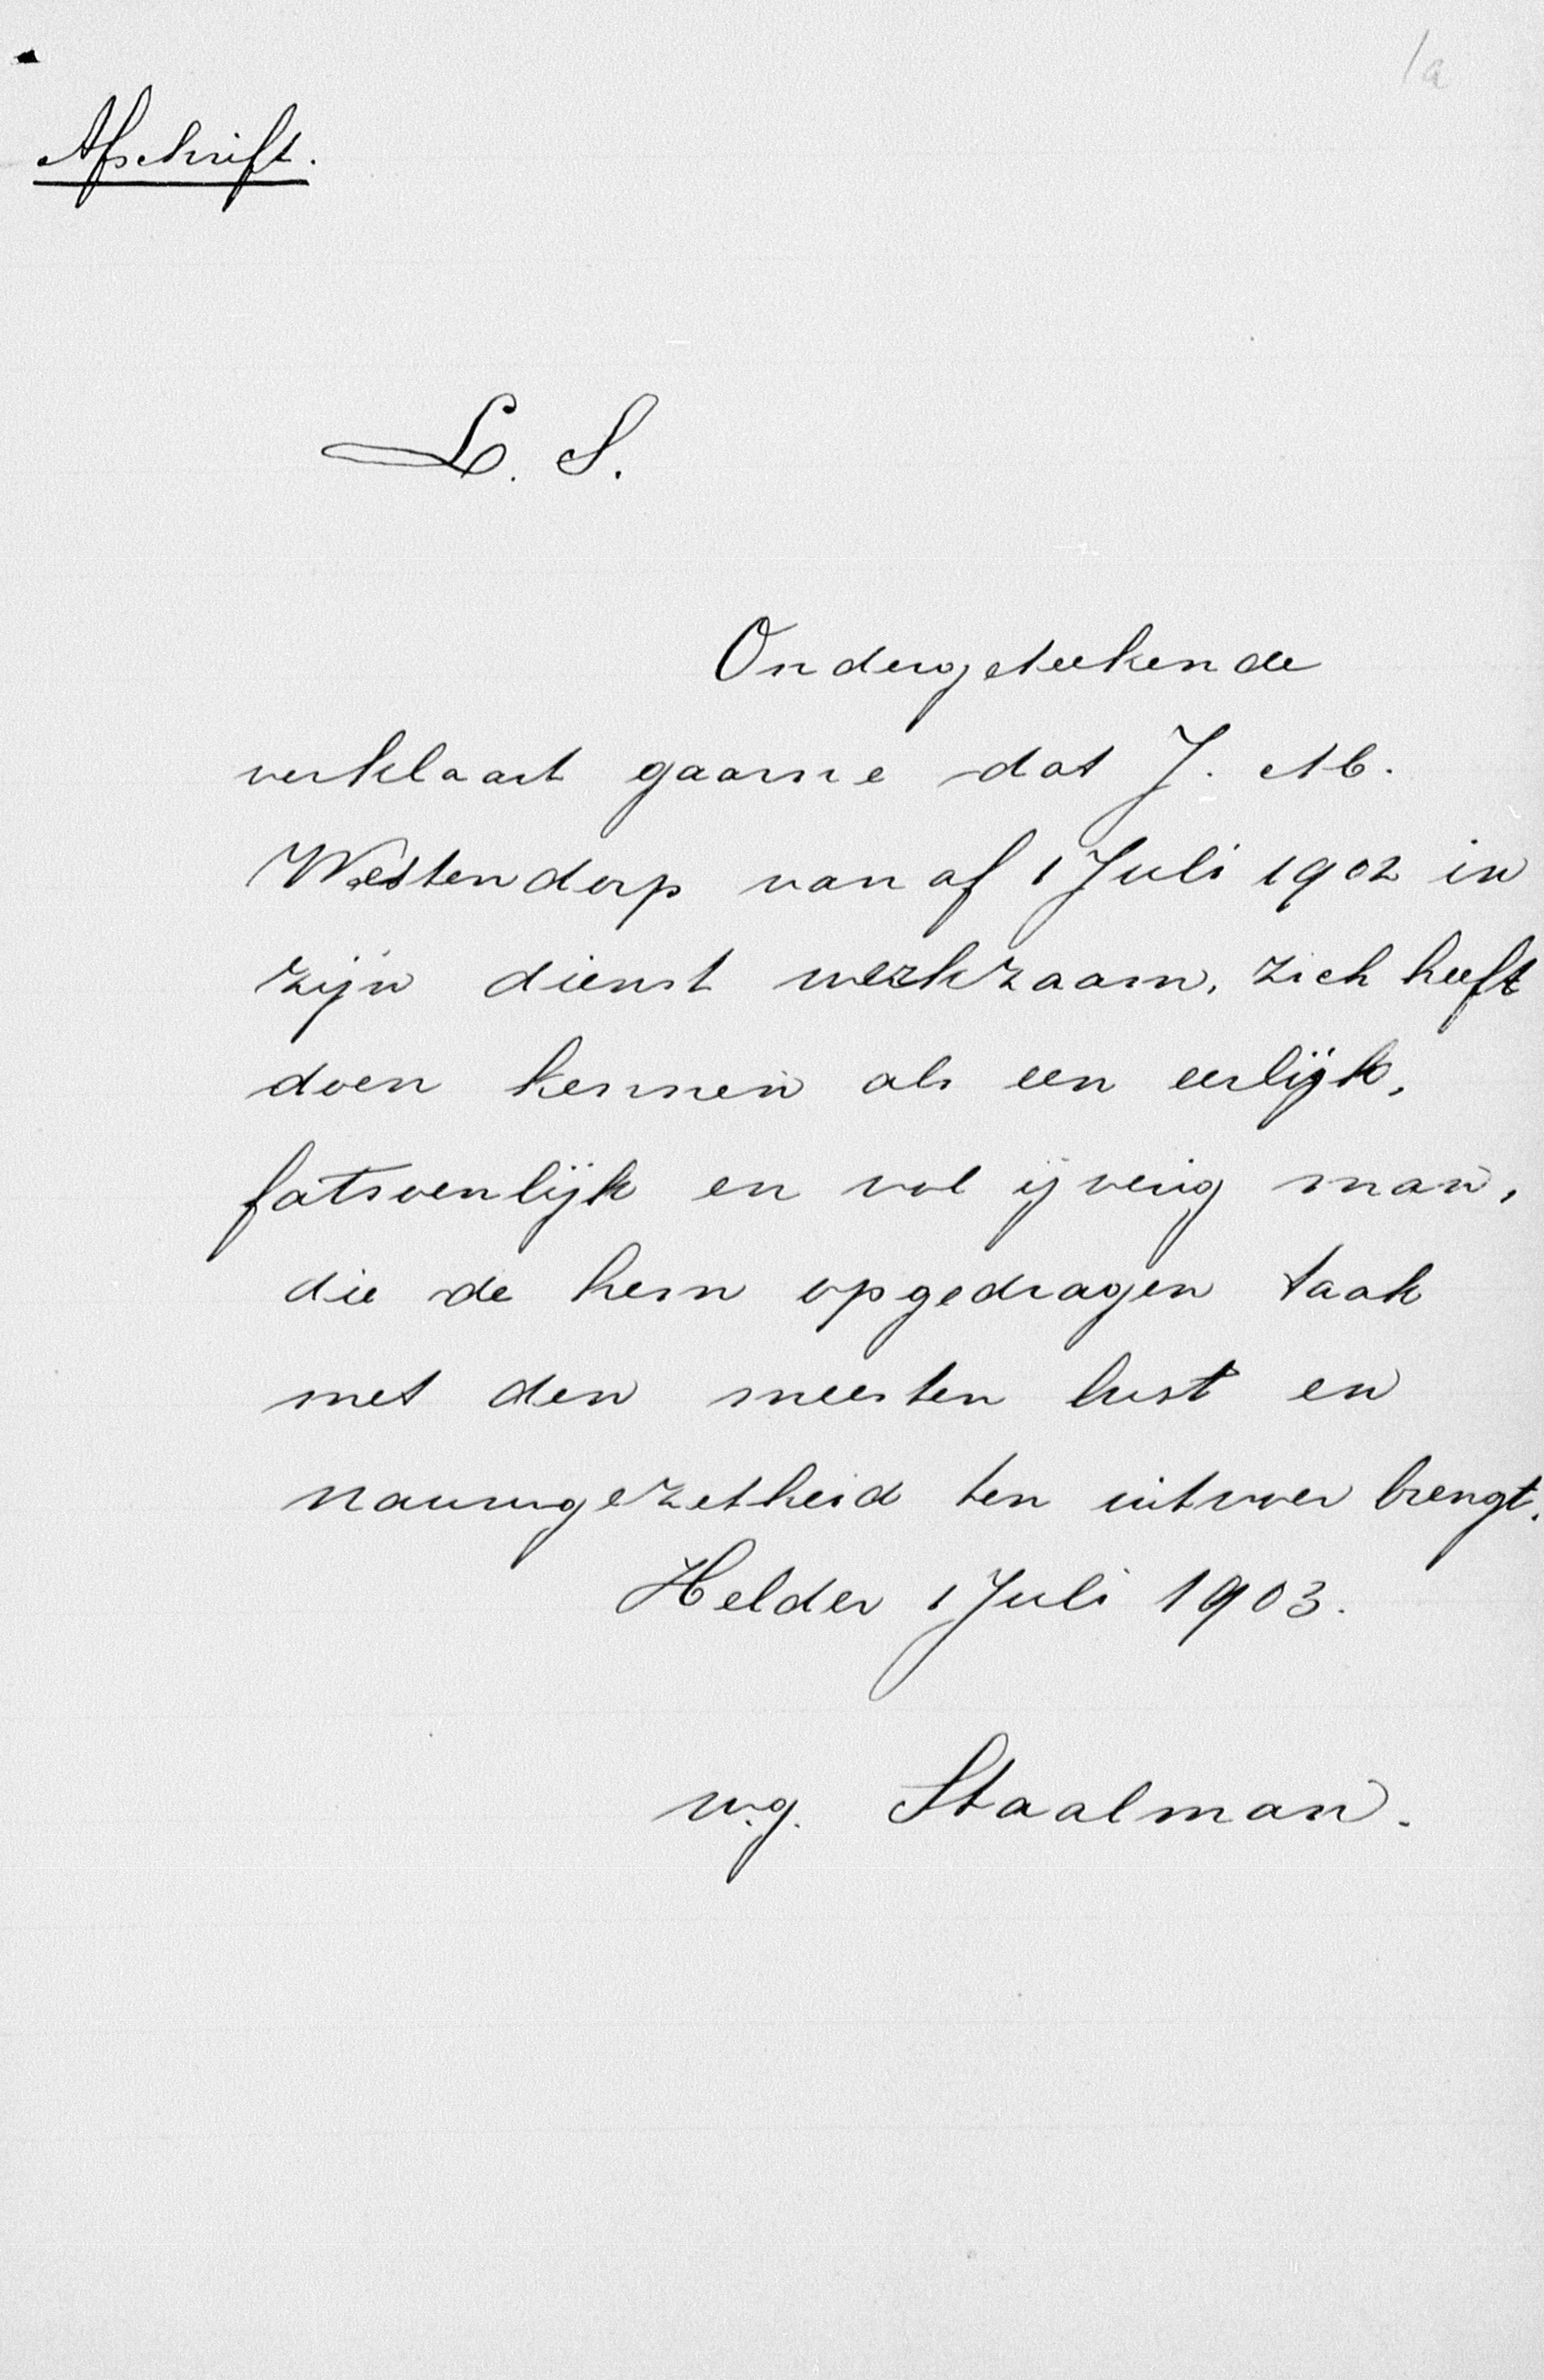 1a
Afschrift.
L. S.
Ondergeteekende
verklaart gaarne dat J. M.
Westendorp vanaf 1 Juli 1902 in
zijn dienst werkzaam, zich heeft
doen kennen als een eerlijk,
fatsoenlijk en vol ijverig man,
die de hem opgedragen taak
met den meesten lust en
nauwgezetheid ten uitvoer brengt.
Helder 1 Juli 1903.
w.g. Staalman.